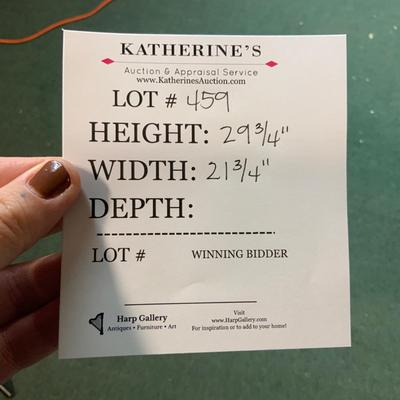 KATHERINE'S
Auction & Appraisal Service
www.KatherinesAuction.com
LOT # 459
HEIGHT: 29 3/4"
WIDTH: 21 3/4"
DEPTH:
LOT # WINNING BIDDER
Harp Gallery
Antiques • Furniture • Art
Visit
www.HarpGallery.com
For inspiration or to add to your home!